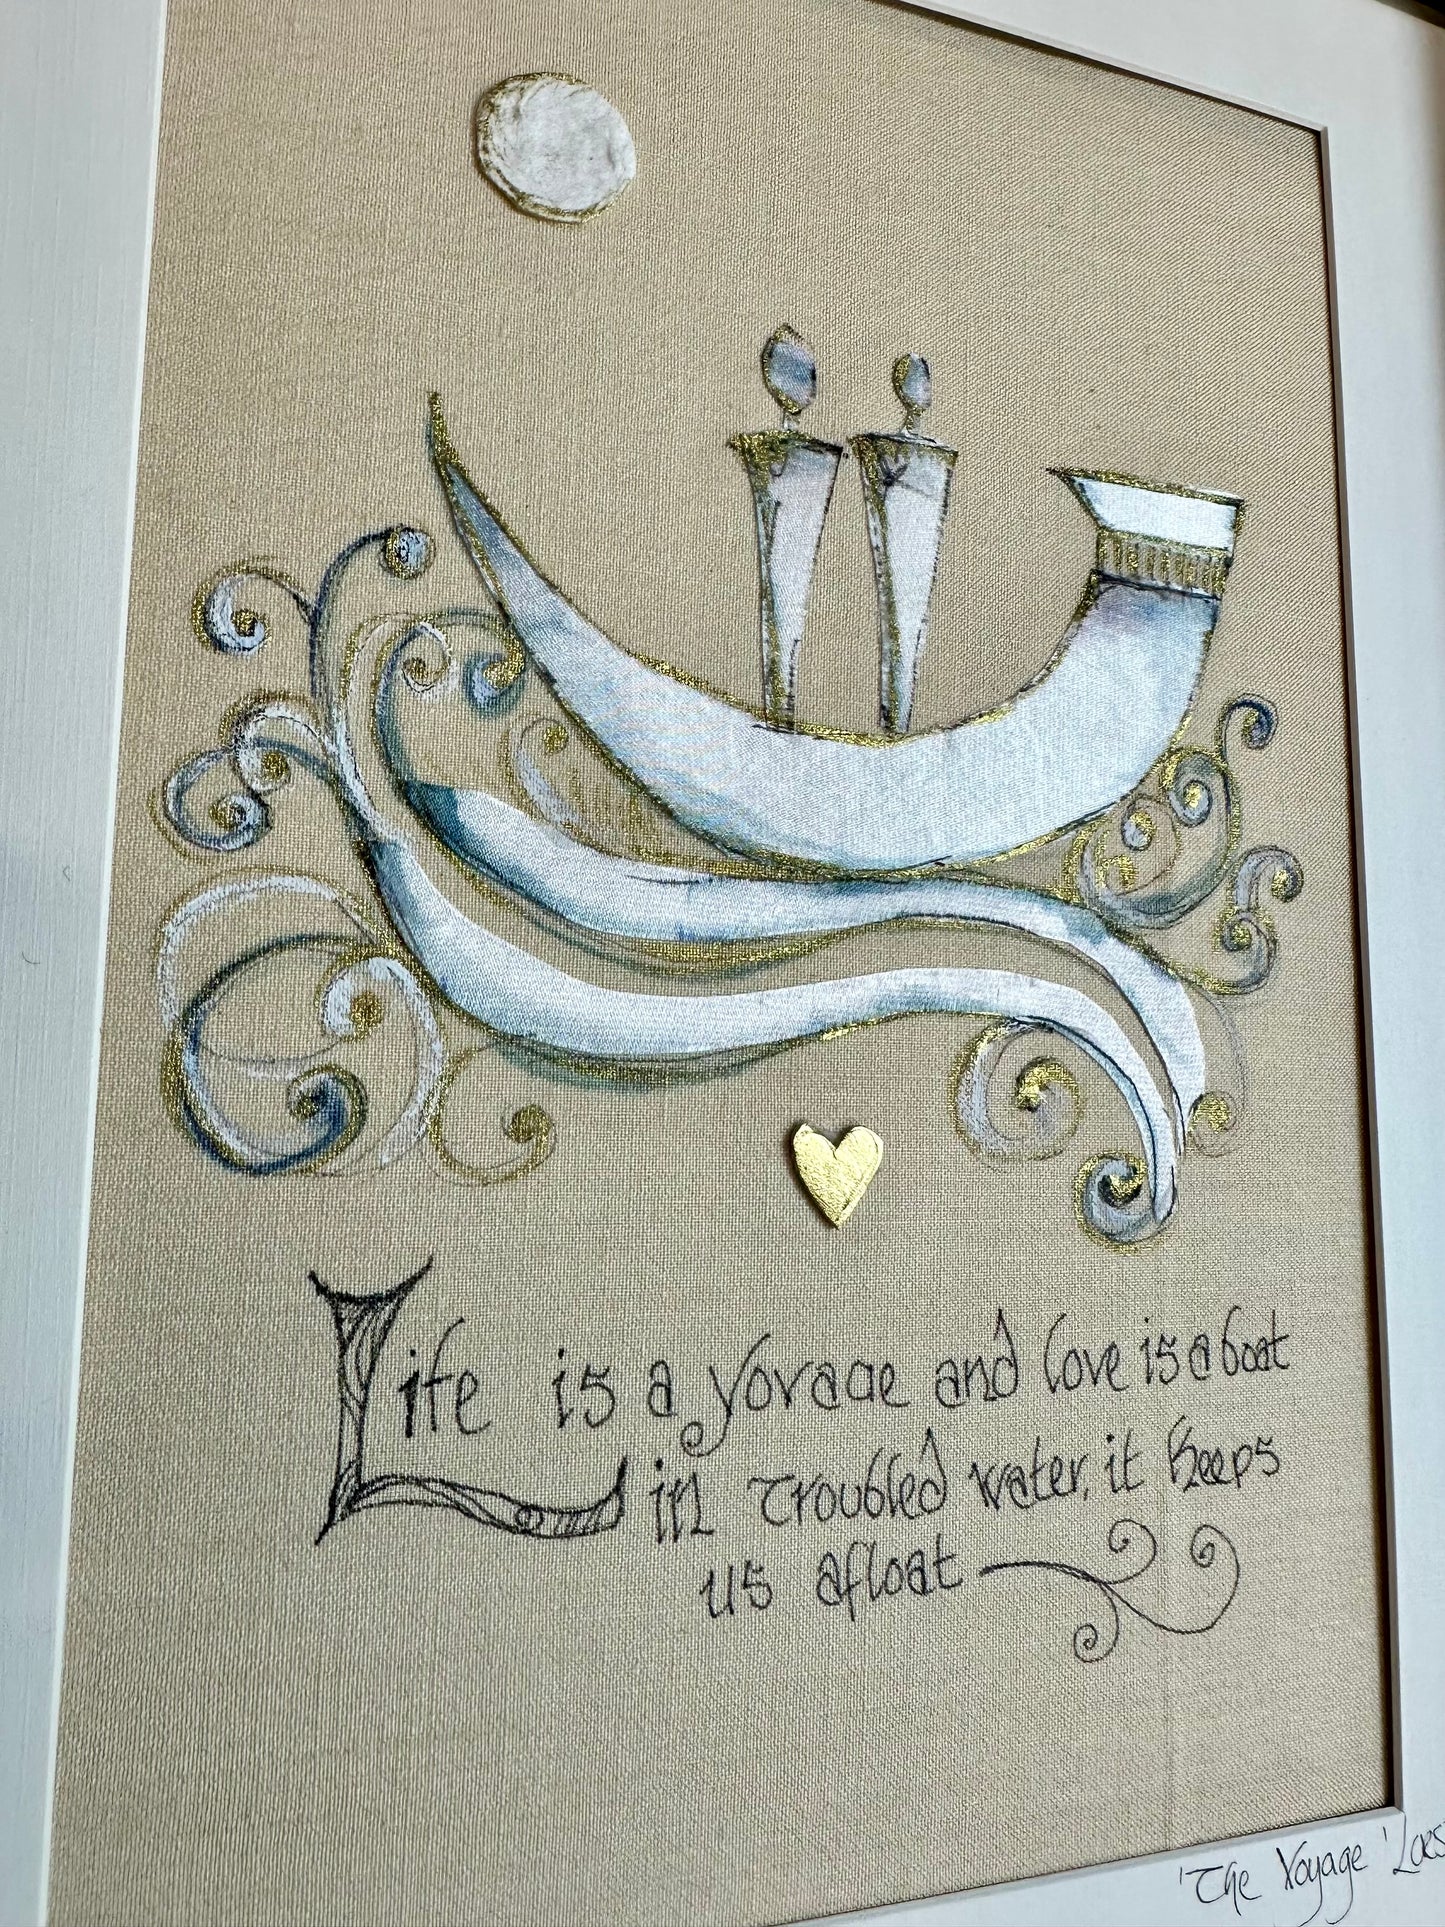 Life is a Voyage and love is a boat
in troubled water, it keeps
us afloat
'The Voyage'